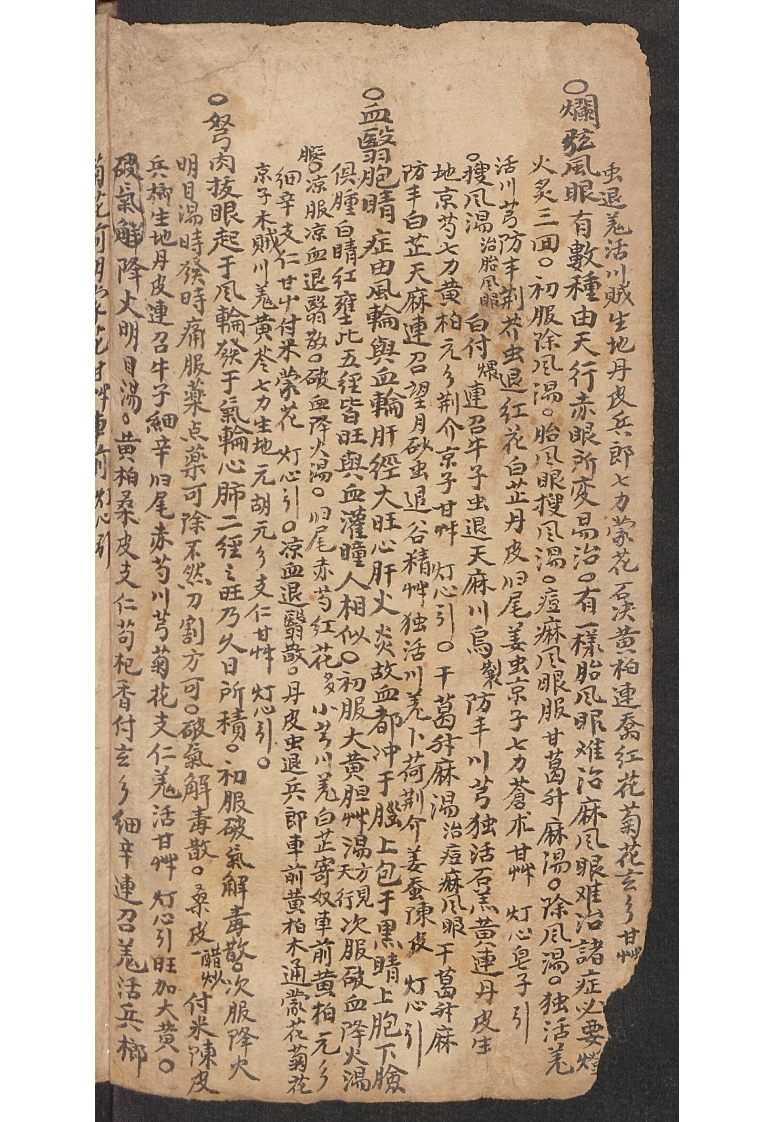 虫退羗活川賊生地丹皮兵郎七力蒙花石决黄柏連喬紅花菊花玄多甘艸
○爛弦風眼有數種由天行赤眼所変易治○有一樣胎風眼难治麻风眼难治諸症必要燈
火炙三回○初服除风湯○胎风眼搜风湯○痘麻风眼服甘葛升麻湯○除风湯○独活羗
活川芎防丰荆芥虫退紅花白芷丹皮归尾姜虫京子七力蒼朮甘艸 灯心皂子引
○搜风湯治胎风眼 白付煨連召牛子虫退天麻川烏製防丰川芎独活石羔黄連丹皮生
地京芍七力黄柏元多荆介京子甘艸 灯心引○干葛升麻湯治痘麻风眼干葛升麻
防丰白芷天麻連召望月砂虫退谷精艸独活川羗卜荷荆介姜蚕陳皮 灯心引
○血翳胞睛 症由風輪與血輪肝經大旺心肝火炎故血都冲于腦上包于黒睛上胞下臉
俱腫白睛紅壅此五經皆旺與血灌瞳人相似○初服大黄胆艸湯方見天行次服破血降火湯
○凉服凉血退翳散○破血降火湯○归尾赤芍紅花多小芎川羗白芷寄奴車前黄柏元多
細辛支仁甘中付米蒙花 灯心引○凉血退翳散○丹皮虫退兵郎車前黄柏木通蒙花菊花
京子木賊川羗黄芩七力生地元胡元多支仁甘艸 灯心引○
○弩肉扳眼起于风輪發于氣輪心肺二經之旺乃久日所積○初服破氣解毒散○次服降火
明目湯時發時痛服藥点藥可除不然刀割方可○破氣解毒散○桑皮醋炒付米陳皮
兵榔生地丹皮連召牛子細辛归尾赤芍川芎菊花支仁羗活甘艸 灯心引旺加大黄○
破氣解降火明目湯○黄柏桑皮支仁苟杞香付玄多細辛連召羗活兵榔
菊花前明蒙花甘艸車前灯心引